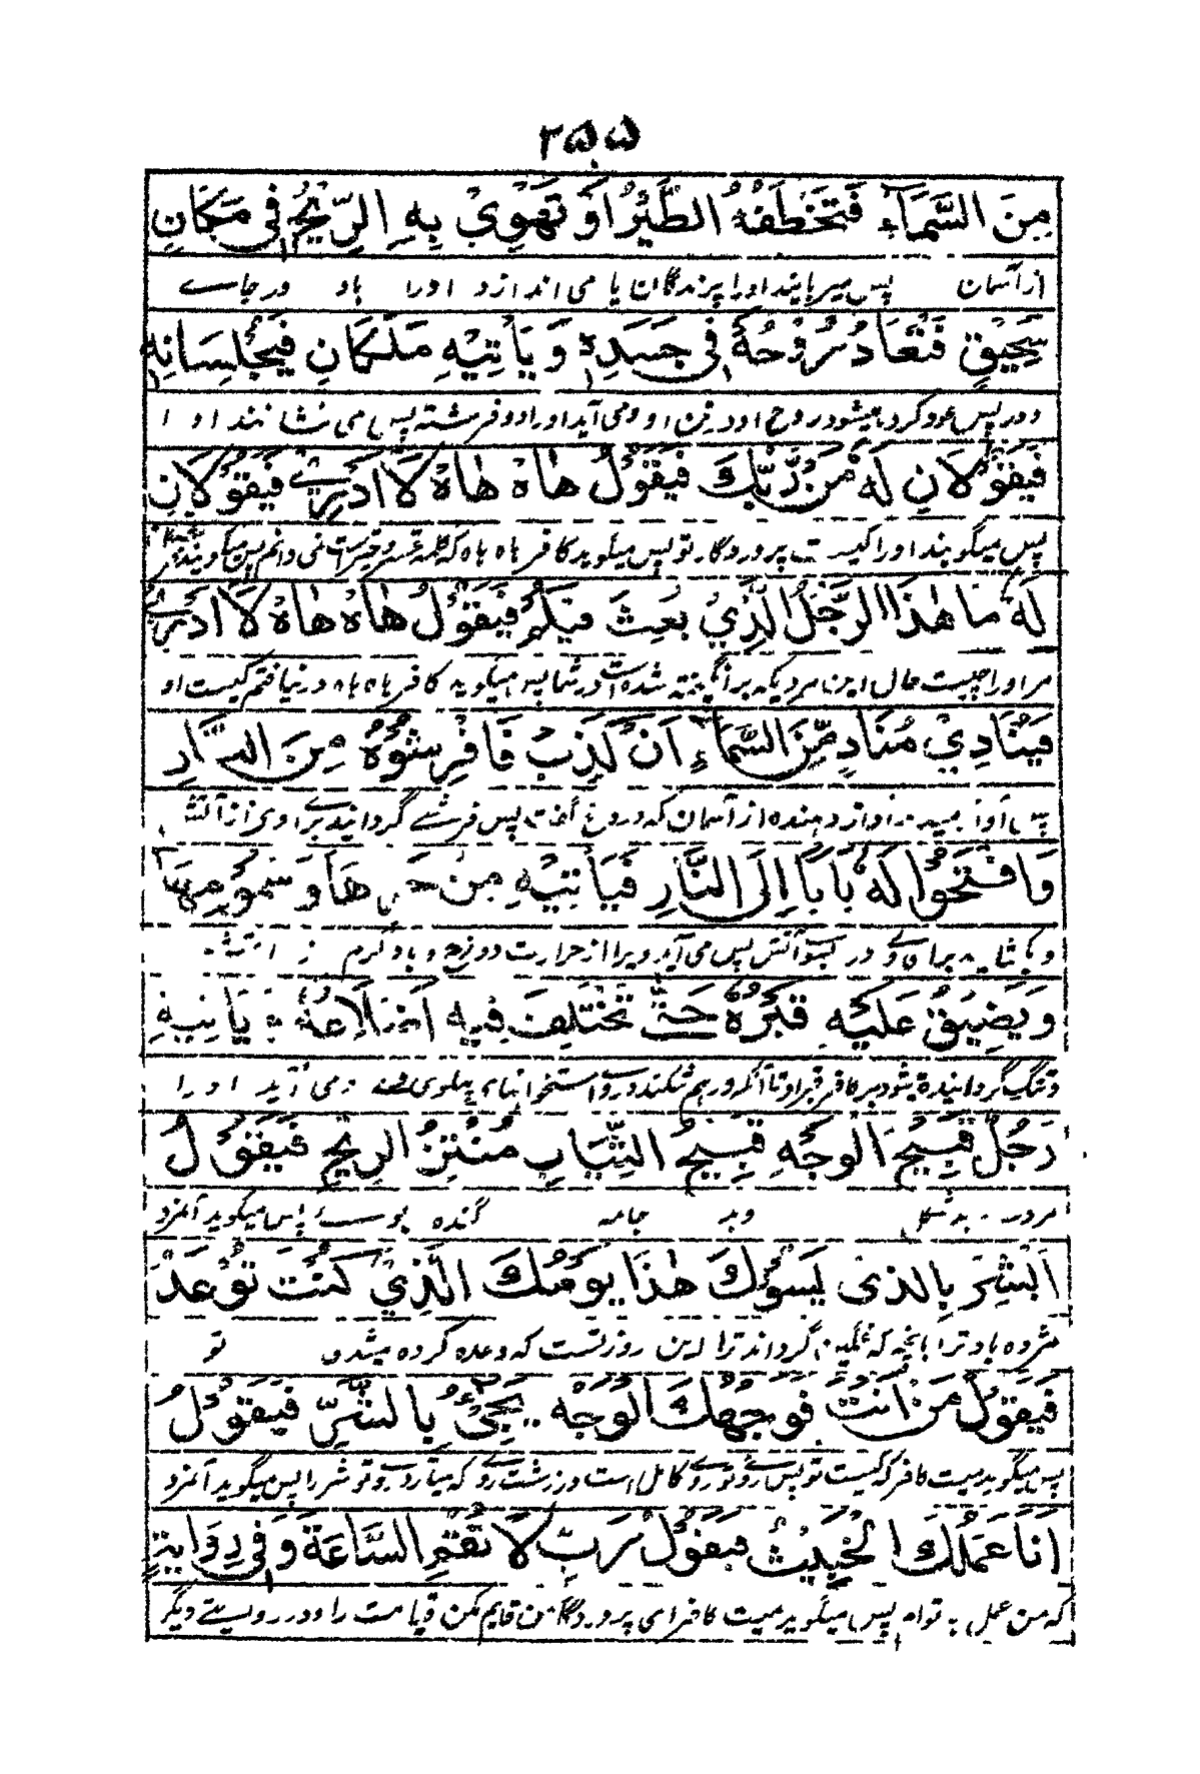 ۲۵۵
مِنَ السَّمَاءِ فَتَخْطَفُهُ الطَّيْرُ اَوْ تَهْوِيْ بِهِ الرِّيْحُ فِيْ مَكَانٍ
از آسمان پس میربایند او را پرندگان یا می اندازد او را باد در جاے
سَحِيْقٍ فَتُعَادُ رُوْحُهُ فِيْ جَسَدِهٖ وَيَأْتِيْهِ مَلَكَانِ فَيُجْلِسَانِهٖ
دور پس عود کرده میشود روح او در تن او و می آید او را دو فرشته پس می نشانند او ا
فَيَقُوْلَانِ لَهُ مَنْ رَّبُّكَ فَيَقُوْلُ هَاهْ هَاهْ لَا اَدْرِيْ فَيَقُوْلَانِ
پس میگویند او را کیست پروردگار تو پس میگوید کافر هاه هاه که کلمه نمی دانم پس میگویند
لَهُ مَا هٰذَا الرَّجُلُ الَّذِيْ بُعِثَ فِيْكُمْ فَيَقُوْلُ هَاهْ هَاهْ لَا اَدْرِيْ
مر او را چیست حال این مرد یکه برانگیخته شده است در شما پس میگوید کافر هاه هاه در نیافتم کیست او
فَيُنَادِيْ مُنَادٍ مِّنَ السَّمَاءِ اَنْ كَذَبَ فَافْرِشُوْهُ مِنَ النَّارِ
پس آواز میدهد آواز دهنده از آسمان که دروغ گفت پس فرشے گردانید براے وی از آتش
وَافْتَحُوْا لَهُ بَابًا اِلَى النَّارِ فَيَأْتِيْهِ مِنْ حَرِّهَا وَسَمُوْمِهَا
و بکشایید براے او در بسوے آتش پس می آید ویرا از حرارت دوزخ و باد گرم
وَيُضَيَّقُ عَلَيْهِ قَبْرُهُ حَتّٰى تَخْتَلِفَ فِيْهِ اَضْلَاعُهُ يَاتِيْهِ
و تنگ گردانیده میشود بر کافر قبر او تا آنکه در هم شکند در وے استخوانهاے پهلوی می آید او را
رَجُلٌ قَبِيْحُ الْوَجْهِ قَبِيْحُ الثِّيَابِ مُنْتِنُ الرِّيْحِ فَيَقُوْلُ
مردے بد شکل و بد جامه گنده بوے پس میگوید آنمرد
اَبْشِرْ بِالَّذِيْ يَسُوْؤُكَ هٰذَا يَوْمُكَ الَّذِيْ كُنْتَ تُوْعَدُ
مژده باد ترا بانچه که غمگین گرداند ترا این روز تست که وعده کرده میشدی تو
فَيَقُوْلُ مَنْ اَنْتَ فَوَجْهُكَ الْوَجْهُ يَجِيْءُ بِالشَّرِّ فَيَقُوْلُ
پس میگوید میت کافر که کیست تو پس روے تو روے کامل است در زشت رو که میآرد روے تو شر را پس میگوید آنمرد
اَنَا عَمَلُكَ الْخَبِيْثُ فَيَقُوْلُ رَبِّ لَا تُقِمِ السَّاعَةَ وَفِيْ رِوَايَةٍ
که من عمل بد توام پس میگوید میت کافر ای پروردگار من قایم مکن قیامت را و در روایتے دیگر